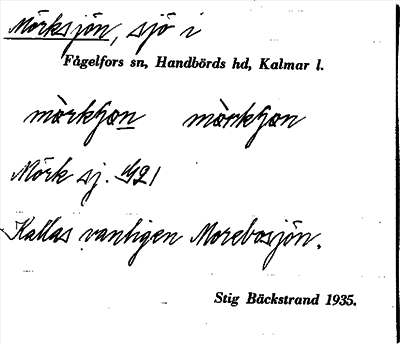 Mörksjön, sjö i
Fågelfors sn, Handbörds hd, Kalmar l.
Mörk sj.
Kallas vanligen Morebosjön.
Stig Bäckstrand 1935.